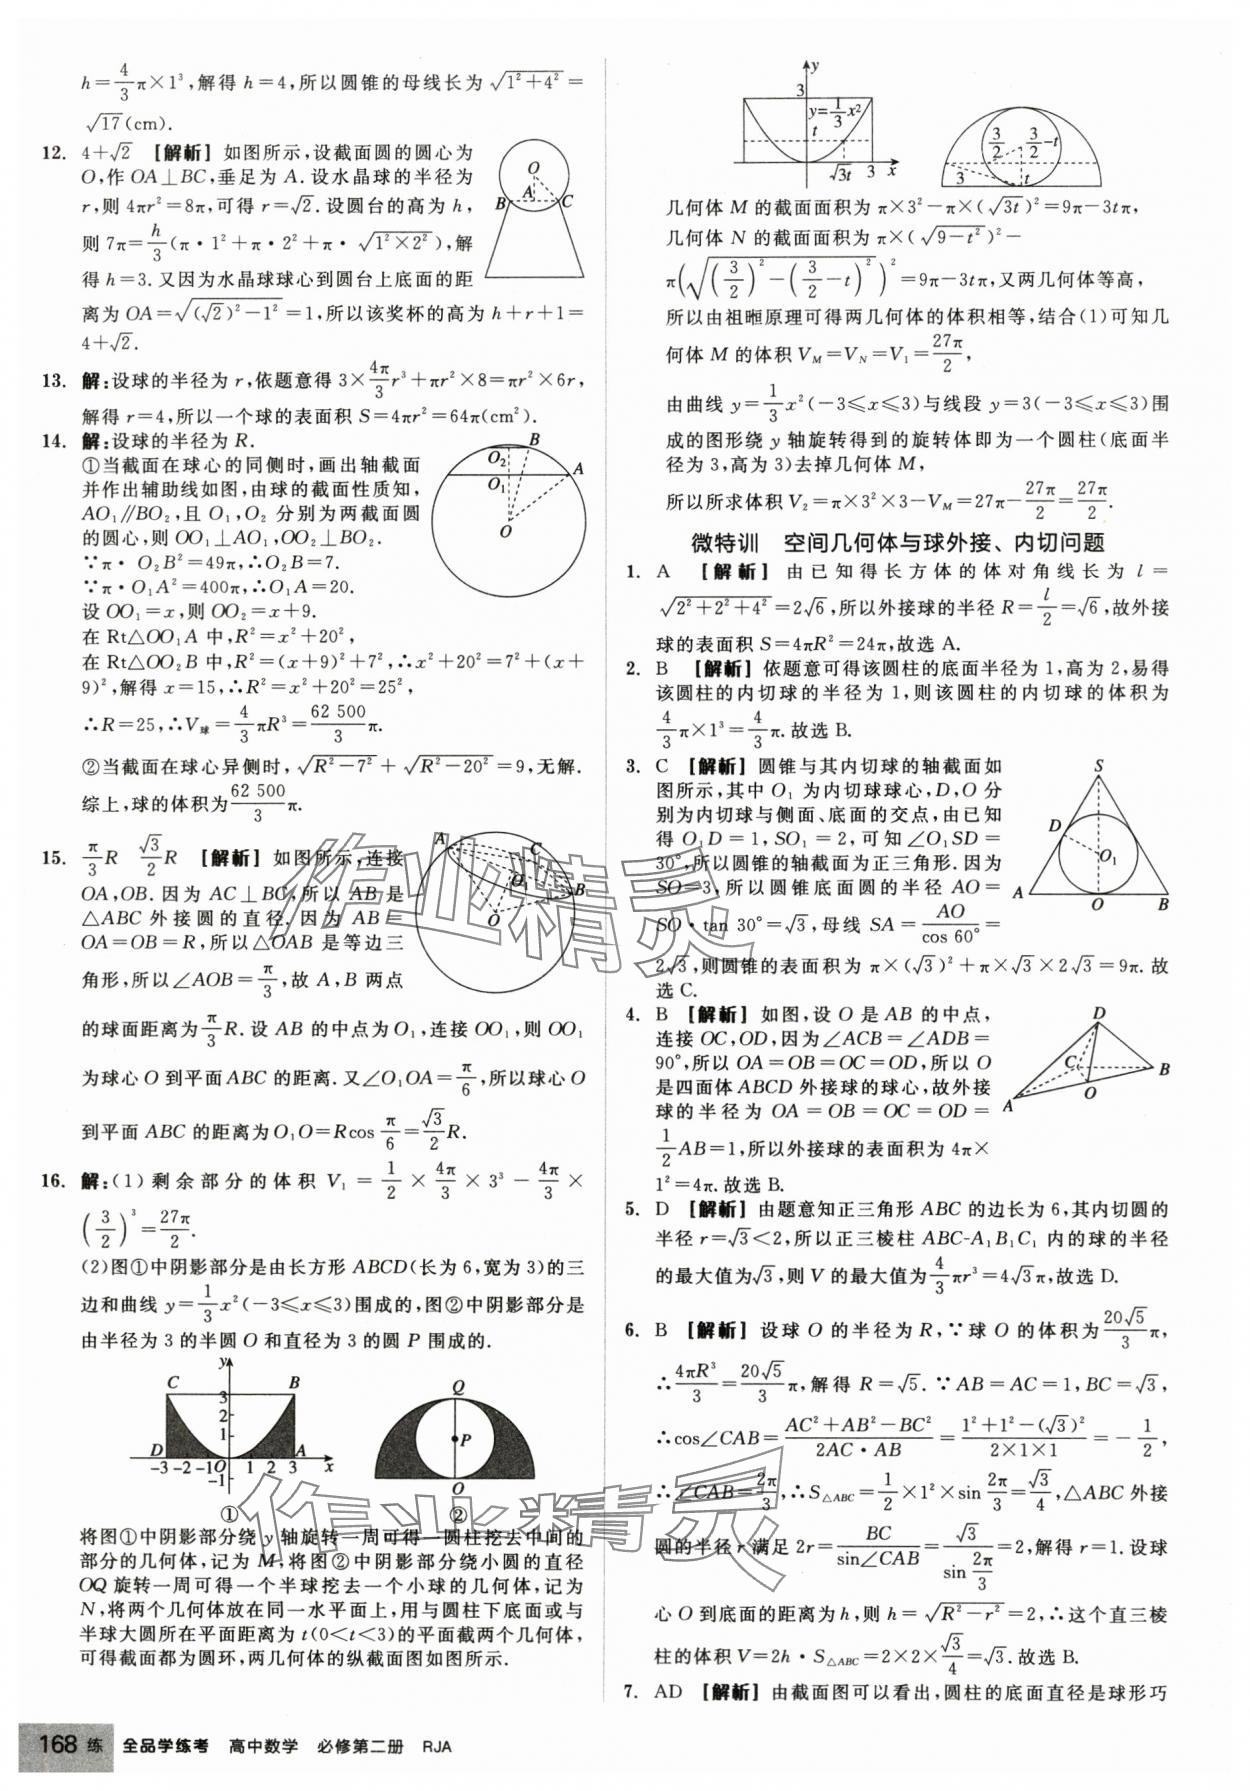 h=4/3π×1³,解得 h=4,所以圆锥的母线长为 √(1²+4²)=
√17(cm).
12. 4+√2 [解析] 如图所示,设截面圆的圆心为
O,作 OA⊥BC,垂足为 A.设水晶球的半径为
r,则 4πr²=8π,可得 r=√2.设圆台的高为 h,
则 7π=h/3(π·1²+π·2²+π·√(1²×2²)),解
得 h=3.又因为水晶球球心到圆台上底面的距
离为 OA=√((√2)²-1²)=1,所以该奖杯的高为 h+r+1=
4+√2.
O
A
B
C
13. 解:设球的半径为 r,依题意得 3×4π/3 r³+πr²×8=πr²×6r,
解得 r=4,所以一个球的表面积 S=4πr²=64π(cm²).
14. 解:设球的半径为 R.
①当截面在球心的同侧时,画出轴截面
并作出辅助线如图,由球的截面性质知,
AO₁∥BO₂,且 O₁,O₂ 分别为两截面圆
的圆心,则 OO₁⊥AO₁,OO₂⊥BO₂.
∵π·O₂B²=49π,∴O₂B=7.
∵π·O₁A²=400π,∴O₁A=20.
设 OO₁=x,则 OO₂=x+9.
在 Rt△OO₁A 中,R²=x²+20²,
在 Rt△OO₂B 中,R²=(x+9)²+7²,∴x²+20²=7²+(x+
9)²,解得 x=15,∴R²=x²+20²=25²,
∴R=25,∴V球=4/3πR³=62 500/3 π.
②当截面在球心异侧时,√(R²-7²)+√(R²-20²)=9,无解.
综上,球的体积为62 500/3 π.
B
O₂
A
O₁
O
15. π/3 R √3/2 R [解析] 如图所示,连接
OA,OB.因为 AC⊥BC,所以 AB 是
△ABC 外接圆的直径.因为 AB=
OA=OB=R,所以△OAB 是等边三
角形,所以∠AOB=π/3,故 A,B 两点
的球面距离为π/3 R.设 AB 的中点为 O₁,连接 OO₁,则 OO₁
为球心 O 到平面 ABC 的距离.又∠O₁OA=π/6,所以球心 O
到平面 ABC 的距离为 O₁O=Rcos π/6=√3/2 R.
A
C
O₁
B
O
16. 解:(1)剩余部分的体积 V₁=1/2×4π/3×3³-4π/3×
(3/2)³=27π/2.
(2)图①中阴影部分是由长方形 ABCD(长为 6,宽为 3)的三
边和曲线 y=1/3x²(-3≤x≤3)围成的,图②中阴影部分是
由半径为 3 的半圆 O 和直径为 3 的圆 P 围成的.
y
C
B
3
2
1
D
A
-3 -2 -1 O 1 2 3 x
-1
①
Q
P
O
②
将图①中阴影部分绕 y 轴旋转一周可得一圆柱挖去中间的
部分的几何体,记为 M,将图②中阴影部分绕小圆的直径
OQ 旋转一周可得一个半球挖去一个小球的几何体,记为
N,将两个几何体放在同一水平面上,用与圆柱下底面或与
半球大圆所在平面距离为 t(0<t<3)的平面截两个几何体,
可得截面都为圆环,两几何体的纵截面图如图所示.
y
3
y=1/3x²
t
√3t 3 x
3/2 3/2-t
3 t
几何体 M 的截面面积为 π×3²-π×(√3t)²=9π-3tπ,
几何体 N 的截面面积为 π×(√(9-t²))²-
π(√((3/2)²-(3/2-t)²))²=9π-3tπ,又两几何体等高,
所以由祖暅原理可得两几何体的体积相等,结合(1)可知几
何体 M 的体积 V_M=V_N=V₁=27π/2,
由曲线 y=1/3x²(-3≤x≤3)与线段 y=3(-3≤x≤3)围
成的图形绕 y 轴旋转得到的旋转体即为一个圆柱(底面半
径为 3,高为 3)去掉几何体 M,
所以所求体积 V₂=π×3²×3-V_M=27π-27π/2=27π/2.
微特训 空间几何体与球外接、内切问题
1. A [解析] 由已知得长方体的体对角线长为 l=
√(2²+2²+4²)=2√6,所以外接球的半径 R=l/2=√6,故外接
球的表面积 S=4πR²=24π,故选 A.
2. B [解析] 依题意可得该圆柱的底面半径为 1,高为 2,易得
该圆柱的内切球的半径为 1,则该圆柱的内切球的体积为
4/3π×1³=4/3π.故选 B.
3. C [解析] 圆锥与其内切球的轴截面如
图所示,其中 O₁ 为内切球球心,D,O 分
别为内切球与侧面、底面的交点,由已知
得 O₁D=1,SO₁=2,可知∠O₁SD=
30°,所以圆锥的轴截面为正三角形.因为
SO=3,所以圆锥底面圆的半径 AO=
SO·tan 30°=√3,母线 SA=AO/cos 60°=
2√3,则圆锥的表面积为 π×(√3)²+π×√3×2√3=9π.故
选 C.
S
D
O₁
A
O
B
4. B [解析] 如图,设 O 是 AB 的中点,
连接 OC,OD,因为∠ACB=∠ADB=
90°,所以 OA=OB=OC=OD,所以 O
是四面体 ABCD 外接球的球心,故外接
球的半径为 OA=OB=OC=OD=
1/2AB=1,所以外接球的表面积为 4π×
1²=4π.故选 B.
D
C
B
A
O
5. D [解析] 由题意知正三角形 ABC 的边长为 6,其内切圆的
半径 r=√3<2,所以正三棱柱 ABC-A₁B₁C₁ 内的球的半径
的最大值为√3,则 V 的最大值为4/3πr³=4√3π,故选 D.
6. B [解析] 设球 O 的半径为 R,∵球 O 的体积为20√5/3 π,
∴4πR³/3=20√5/3 π,解得 R=√5.∵AB=AC=1,BC=√3,
∴cos∠CAB=(AC²+AB²-BC²)/(2AC·AB)=(1²+1²-(√3)²)/(2×1×1)=-1/2,
∴∠CAB=2π/3,∴S△ABC=1/2×1²×sin 2π/3=√3/4,△ABC 外接
圆的半径 r 满足 2r=BC/sin∠CAB=√3/sin 2π/3=2,解得 r=1.设球
心 O 到底面的距离为 h,则 h=√(R²-r²)=2,∴这个直三棱
柱的体积 V=2h·S△ABC=2×2×√3/4=√3.故选 B.
7. AD [解析] 由截面图可以看出,圆柱的底面直径是球形巧
168 练 全品学练考 高中数学 必修第二册 RJA
作业精灵
作业精灵